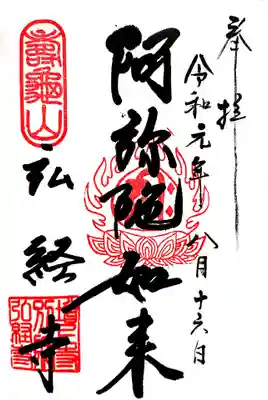 奉拝
令和元年八月十六日
阿弥陀如来
寿亀山
弘経寺